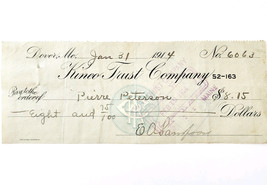 Dover, Mo. Jan 31 1914 No. 6063
Kinco Trust Company 52-163
Pay to the order of Pierre Peterson $8.15
Eight and 15/100 Dollars